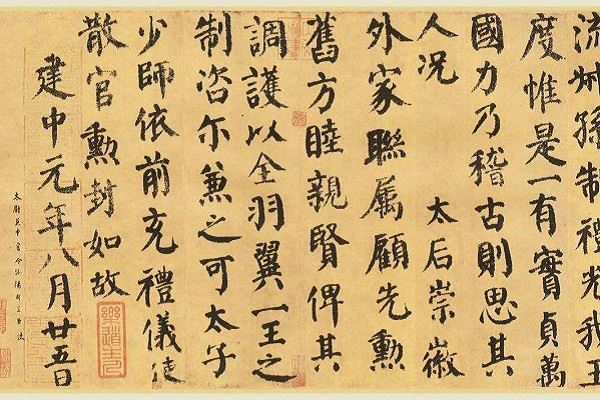 流叔孫制禮光我王
度惟是一有實貞萬
國力乃稽古則思其
人況 太后崇徽
外家聯屬顧先勳
舊方睦親賢俾其
調護以全羽翼一王之
制咨尔兼之可太子
少師依前充禮儀使
散官勳封如故
建中元年八月廿五日
太尉兼中書令汾陽郡王臣使